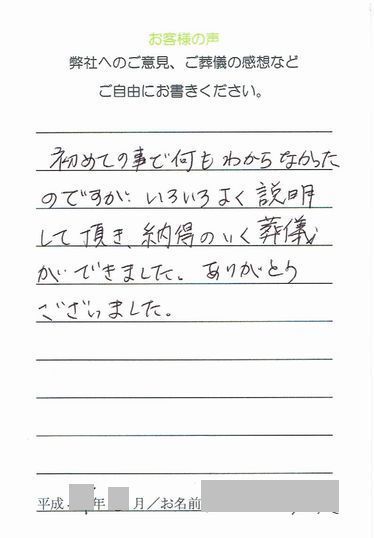 お客様の声
弊社へのご意見、ご葬儀の感想など
ご自由にお書きください。
初めての事で何もわからなかった
のですが、いろいろよく説明
して頂き、納得のいく葬儀
ができました。ありがとう
ございました。
平成 年 月／お名前